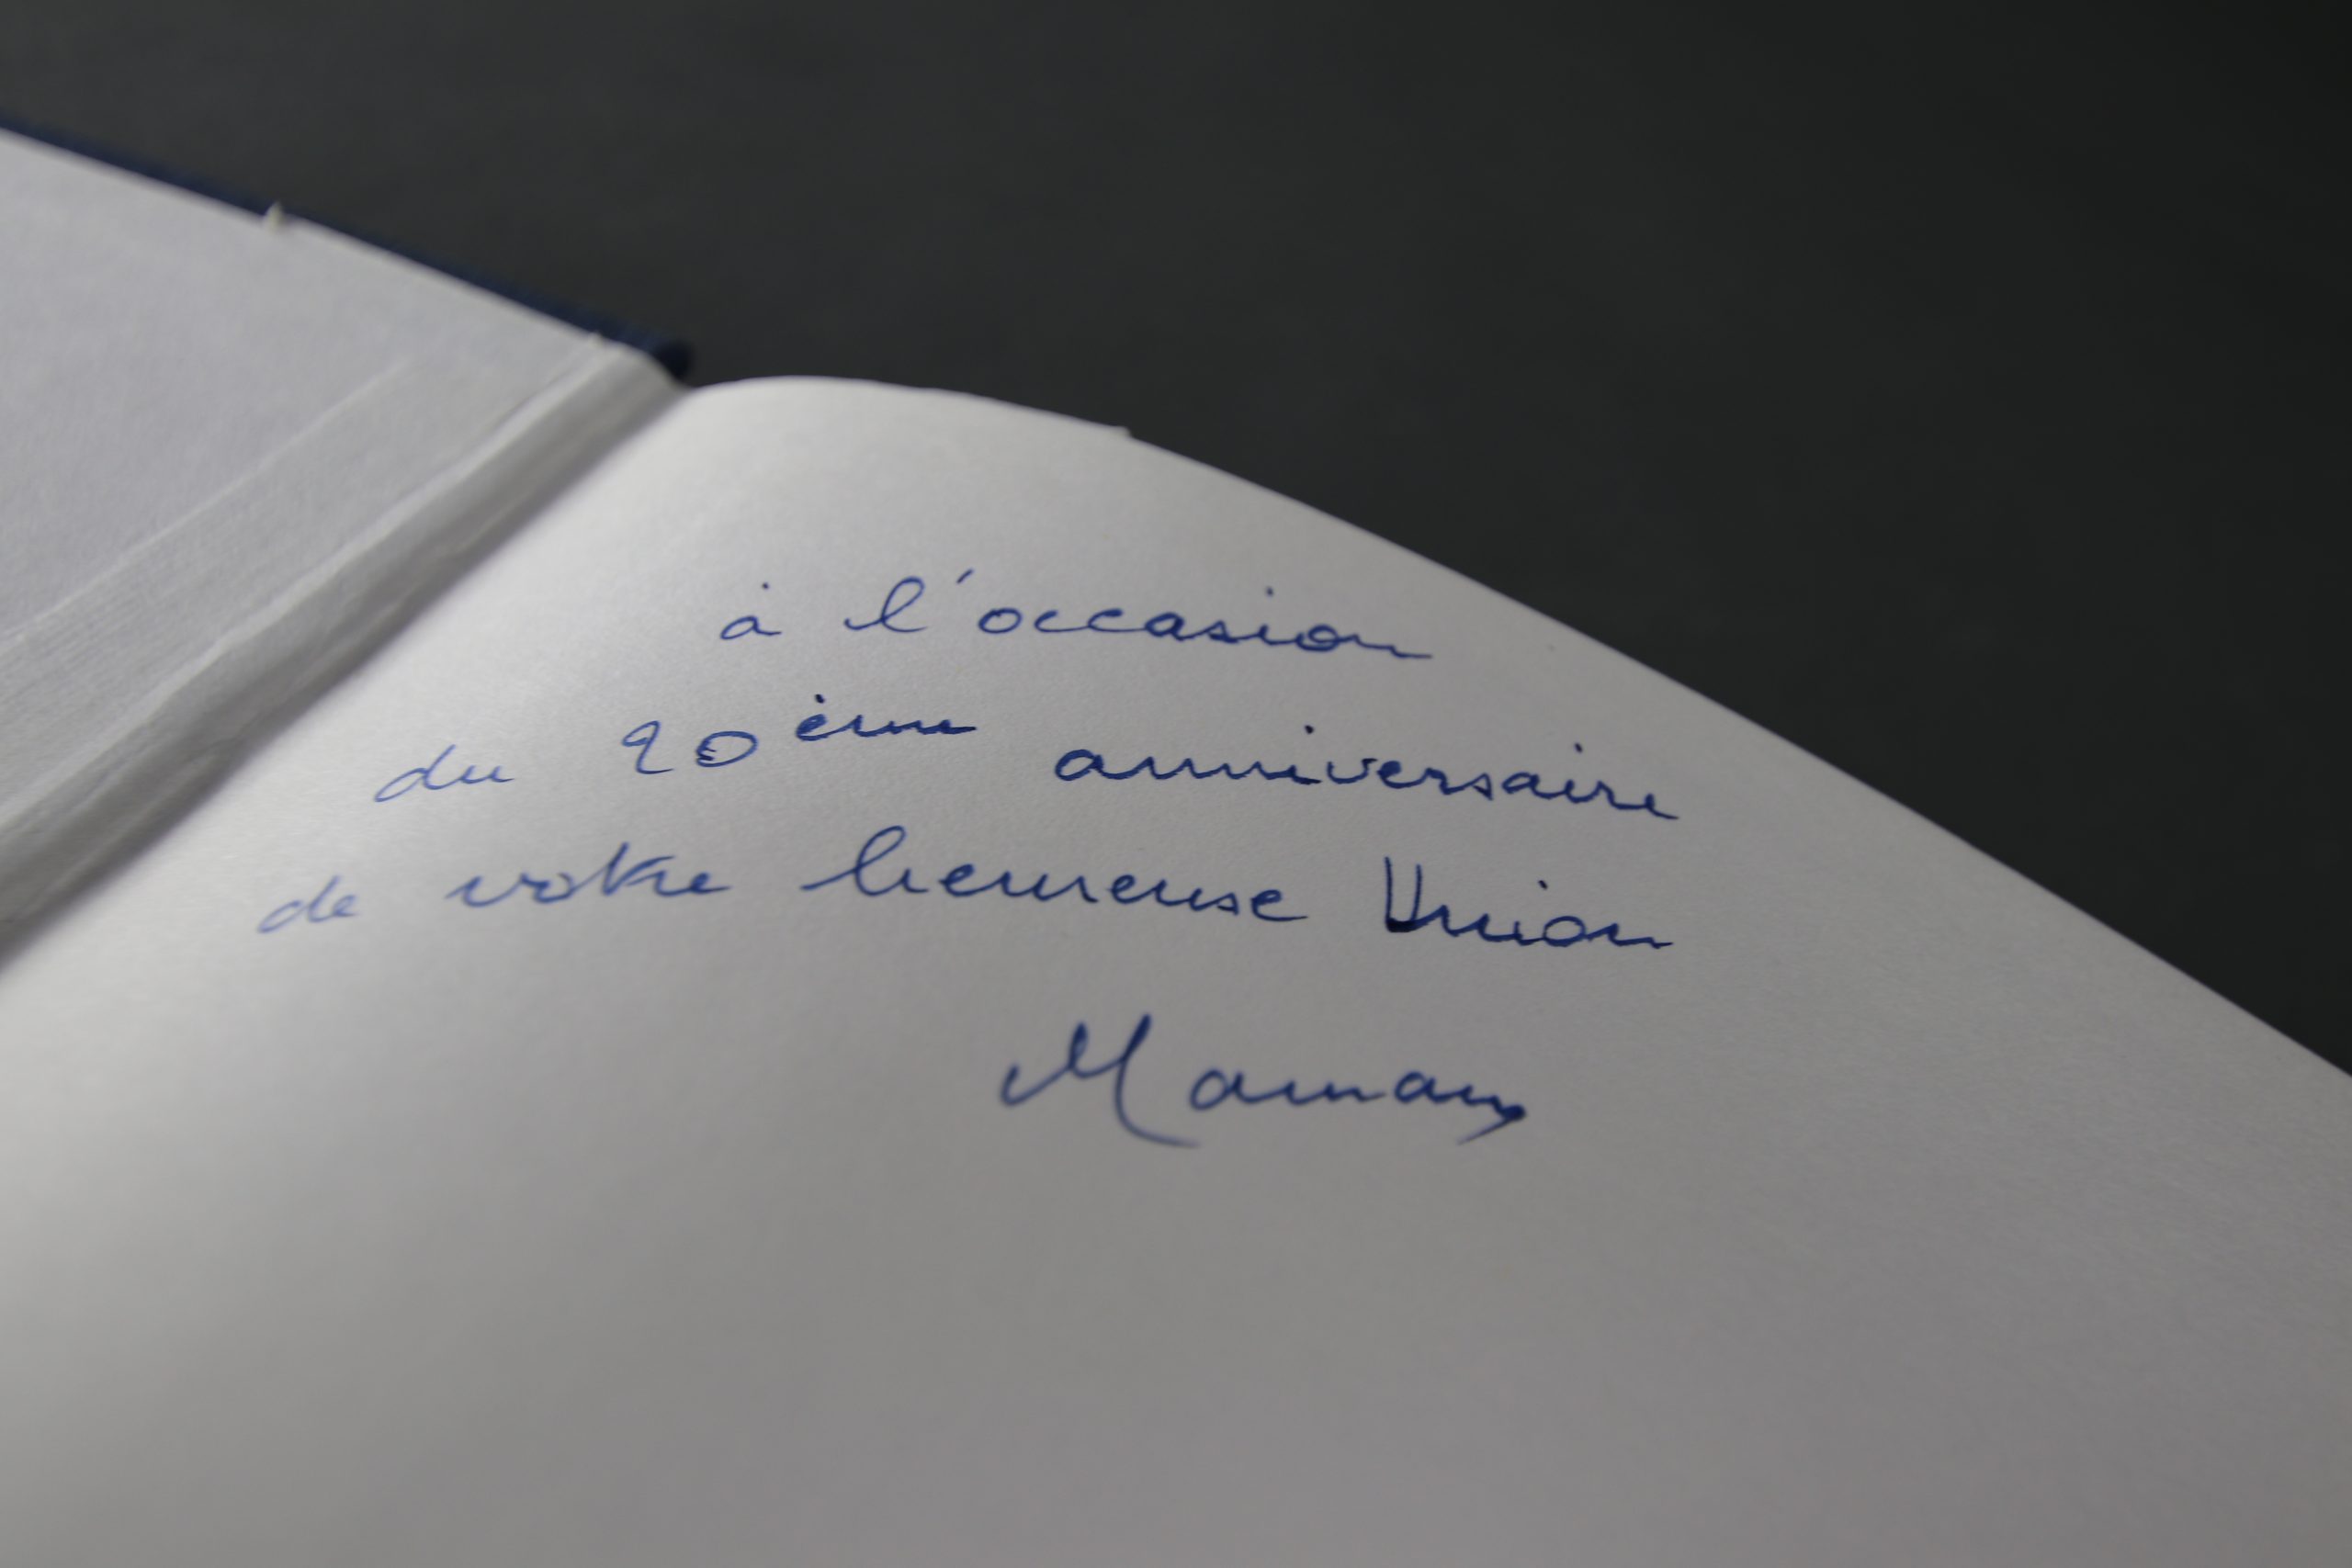 à l'occasion
du 20ème anniversaire
de votre heureuse Union
Maman